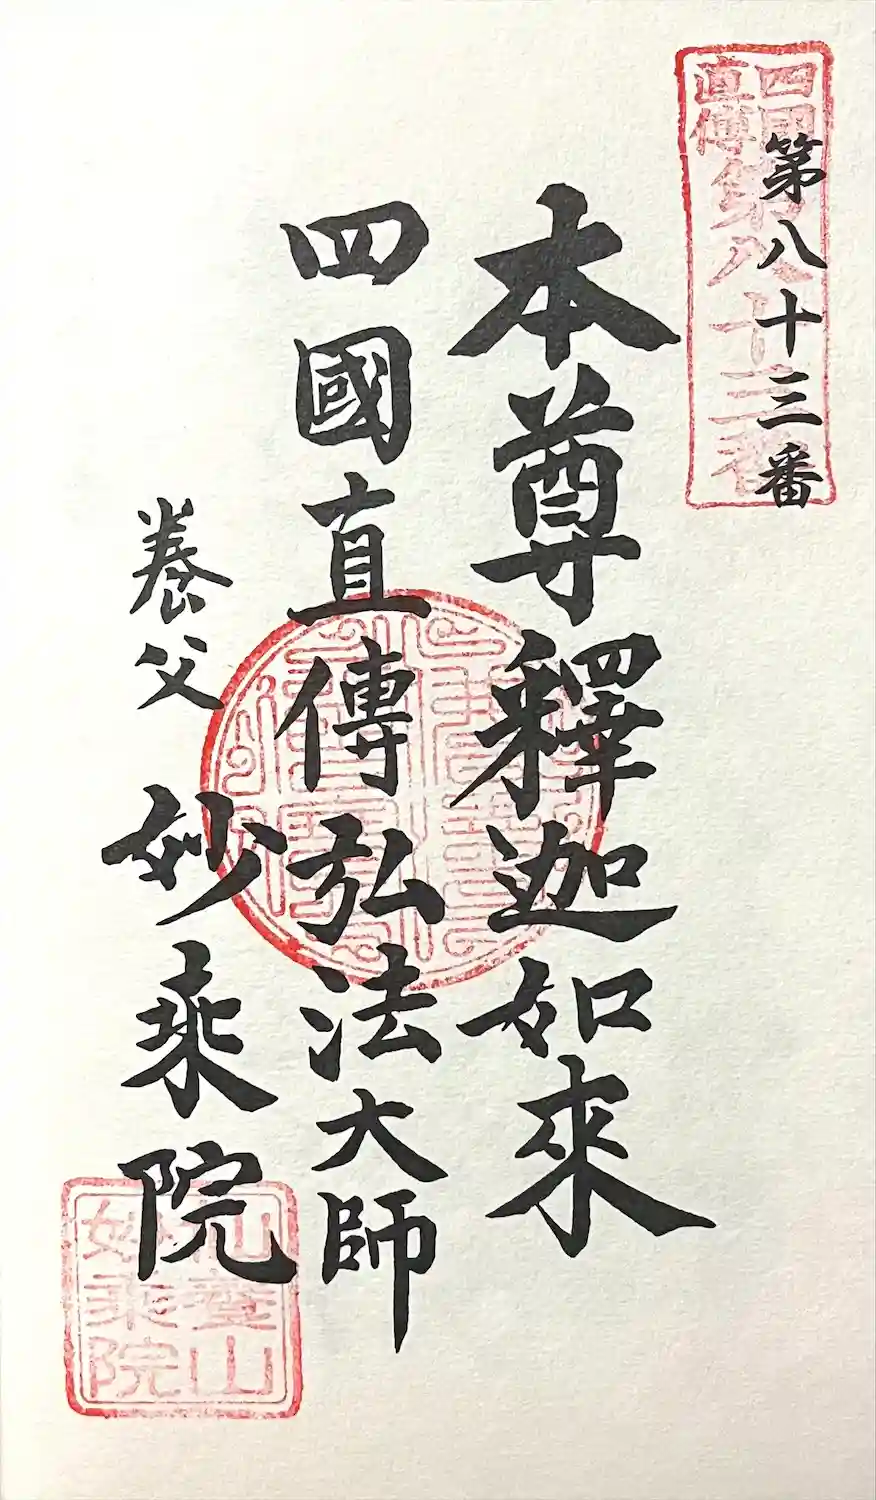 第八十三番
四國
直傳
第八十三番
本尊釋迦如來
四國直傳弘法大師
養父 妙乘院
妙乘院